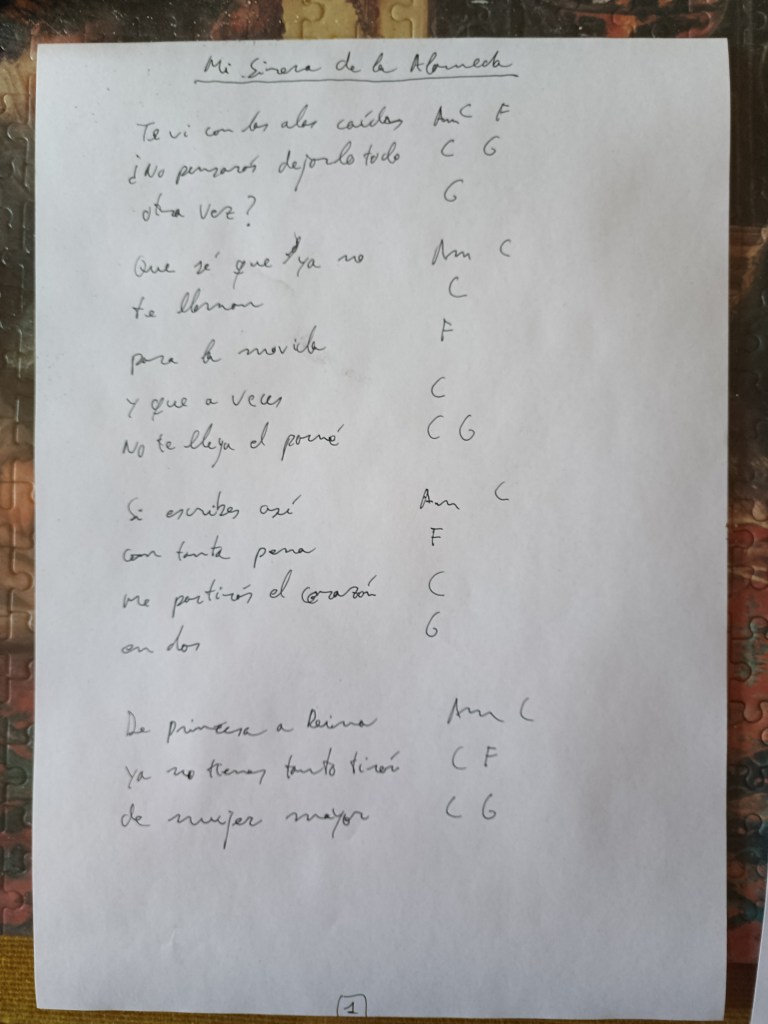 Mi Sirena de la Alameda
Te vi con las alas caídas Am C F
¿No pensarás dejarlo todo C G
otra vez? G
Que sé que ya no Am C
te llaman C
para la movida F
y que a veces C
No te llega el parné C G
Si escribes así Am C
con tanta pena F
me partirás el corazón C
en dos G
De princesa a Reina Am C
ya no tienes tanto tirón C F
de mujer mayor C G
1